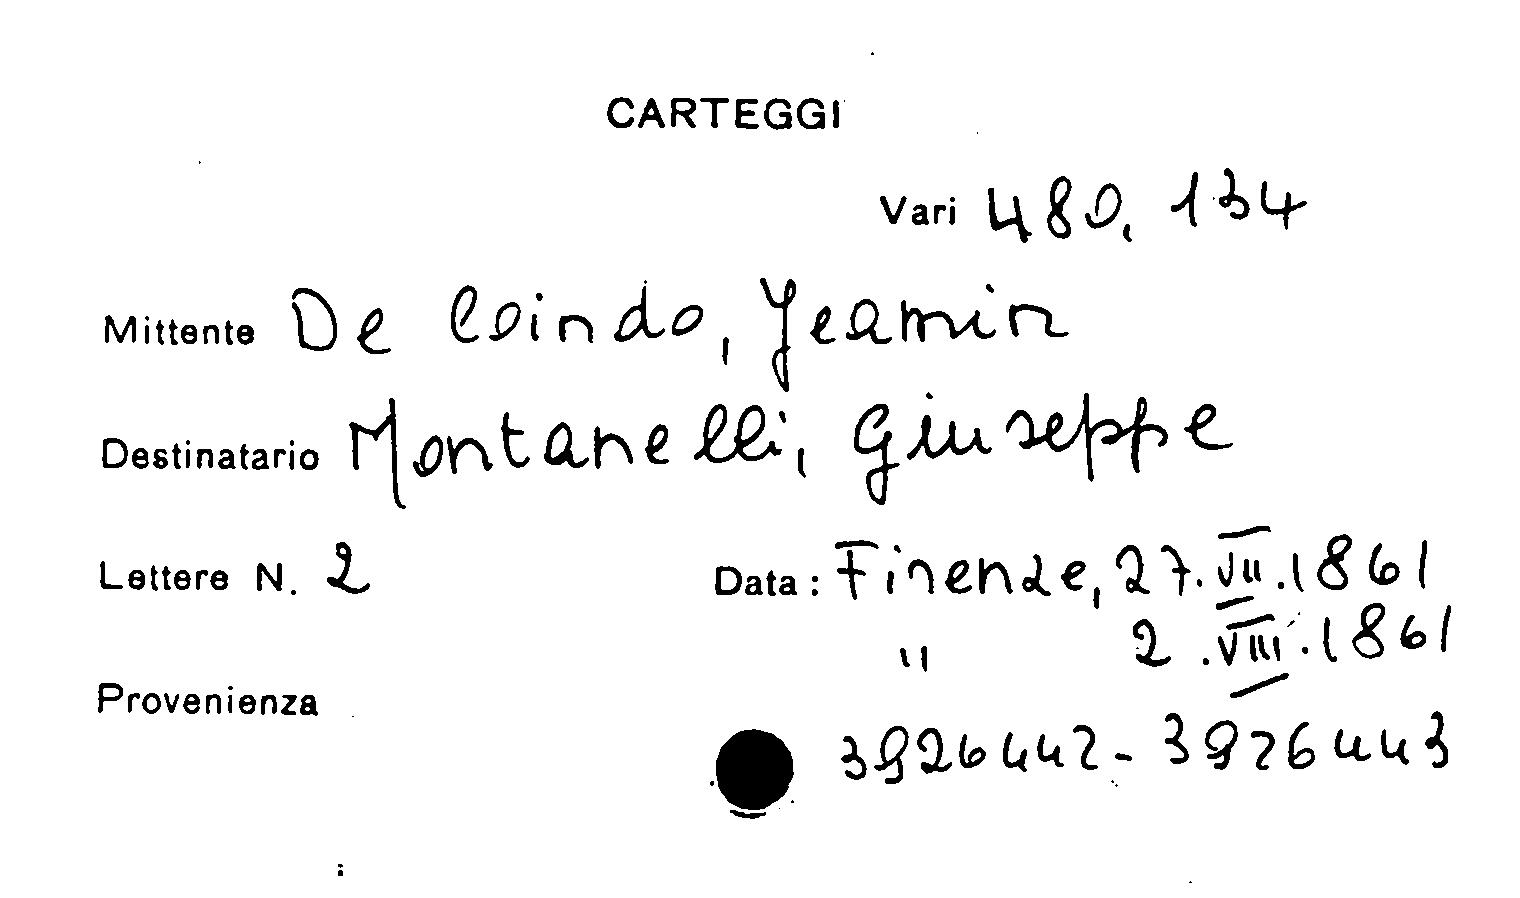 CARTEGGI
Vari 480, 134
Mittente De Coindo, Jeamin
Destinatario Montanelli, Giuseppe
Lettere N. 2 Data: Firenze, 27.VII.1861
" 2.VIII.1861
Provenienza
3926442-3926443